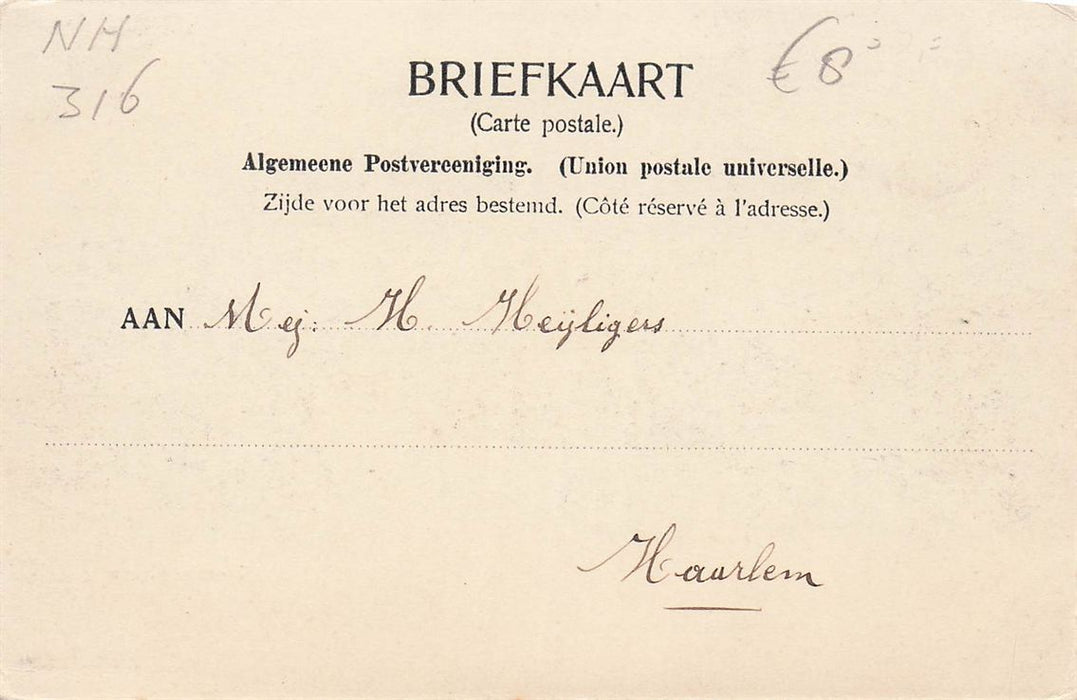 NH
316
€ 8
BRIEFKAART
(Carte postale.)
Algemeene Postvereeniging. (Union postale universelle.)
Zijde voor het adres bestemd. (Côté réservé à l'adresse.)
AAN Mej: H. Heijligers
Haarlem